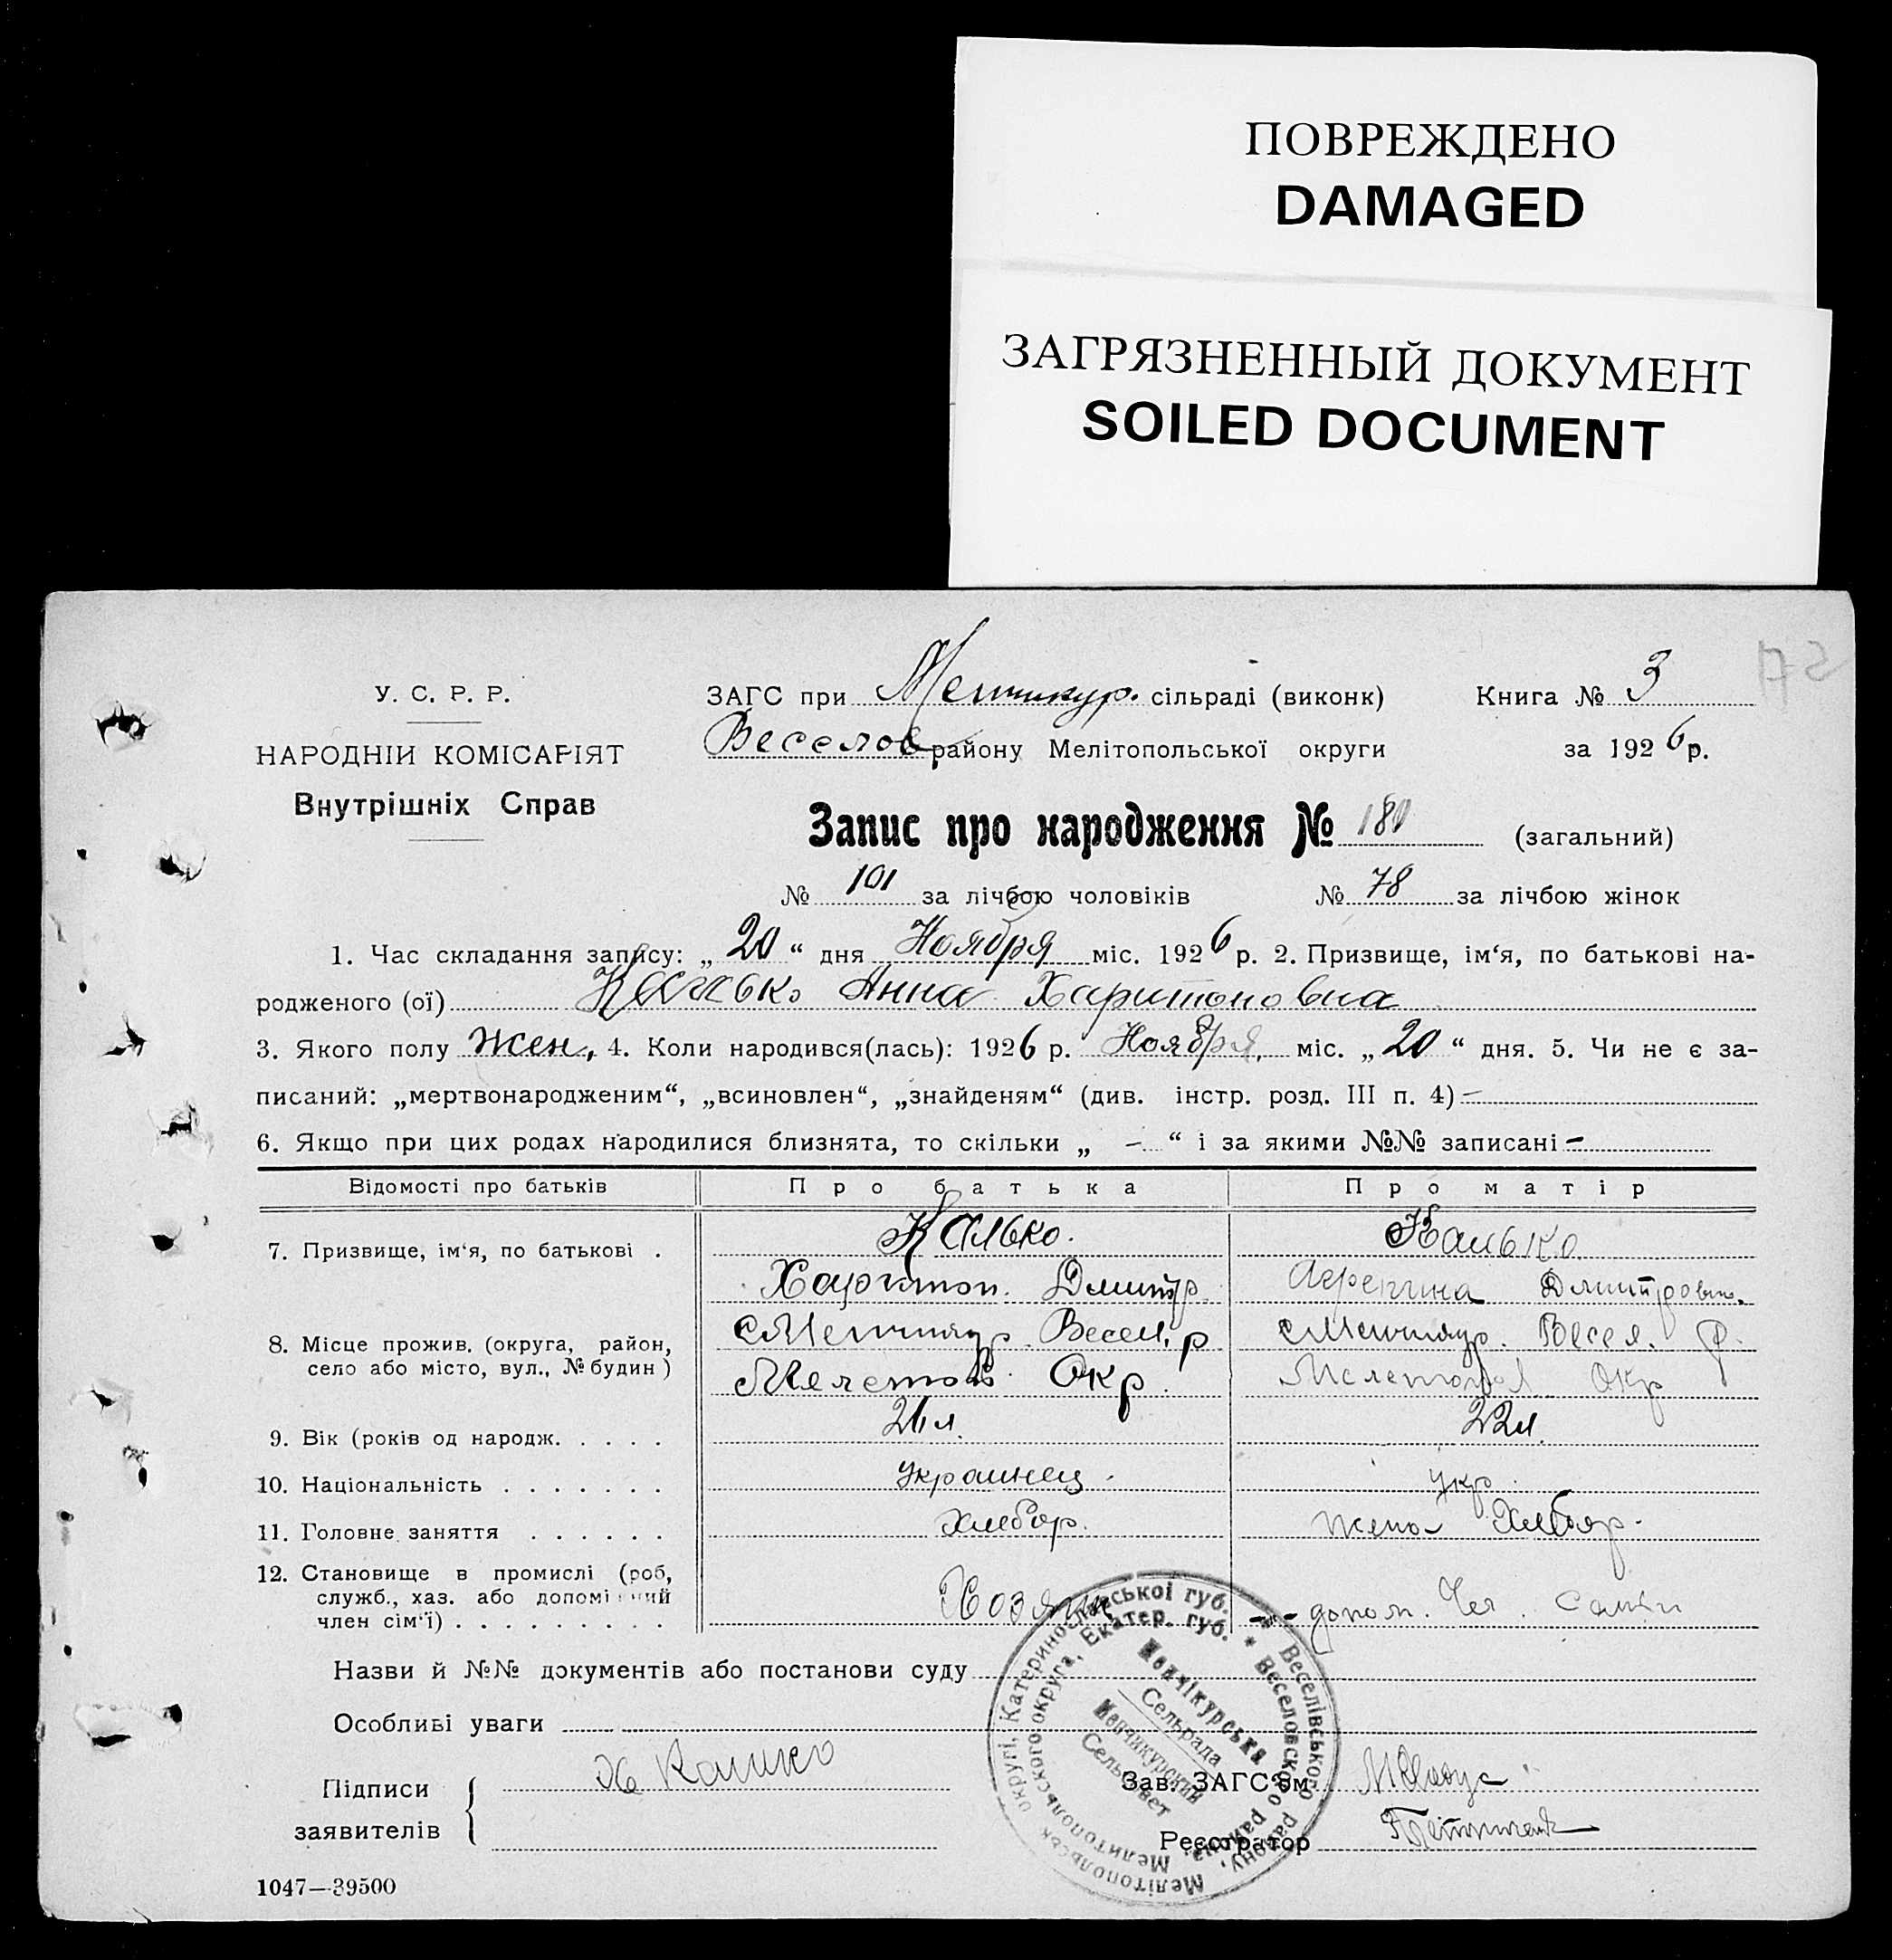 ПОВРЕЖДЕНО
DAMAGED
ЗАГРЯЗНЕННЫЙ ДОКУМЕНТ
SOILED DOCUMENT
У. С. Р. Р.
НАРОДНІЙ КОМІСАРІЯТ
Внутрішніх Справ
ЗАГС при Менчикур. сільраді (виконк) Книга № 3
Веселов району Мелітопольської округи за 1926 р.
Запис про народження № (загальний)
№ 101 за лічбою чоловіків № 78 за лічбою жінок
1. Час складання запису: „ 20 “ дня Ноября міс. 1926 р. 2. Призвище, ім‘я, по батькові на-
родженого (ої) Калько Анна Харитоновна
3. Якого полу Жен, 4. Коли народився(лась): 1926 р. Ноября, міс. „ 20 “ дня. 5. Чи не є за-
писаний: „мертвонародженим“, „всиновлен“, „знайденям“ (див. інстр. розд. III п. 4) –
6. Якщо при цих родах народилися близнята, то скільки „ – “ і за якими №№ записані –
Відомості про батьків Про батька Про матір
7. Призвище, ім‘я, по батькові . Калько. Калько
Харитон. Дмитр Дмитровна.
8. Місце прожив. (округа, район, Менчикур Весел. р Менчикур. Весел. р.
село або місто, вул., № будин) Мелетоп. Окр. Мелетопол Окр
9. Вік (років од народж. . . . . 26 л. 22 л.
10. Національність . . . . . . . Украинец. Укр.
11. Головне заняття . . . . . . Хлебор. Жена Хлебор.
12. Становище в промислі (роб,
служб., хаз. або допоміжний Хозяин допом. Чл. Семьи
член сім‘ї) . . . . . . . . .
Назви й №№ документів або постанови суду
Особливі уваги
Підписи Калько Зав. ЗАГС‘ом
заявителів Реєстратор
1047—39500
Мелітопольськ округі, Катеринославської губ. * Веселівського району,
Мелитопольского округа, Екатер. губ. * Веселовского района,
Менчікурська
Сельрада
Менчикурский
Сельсовет